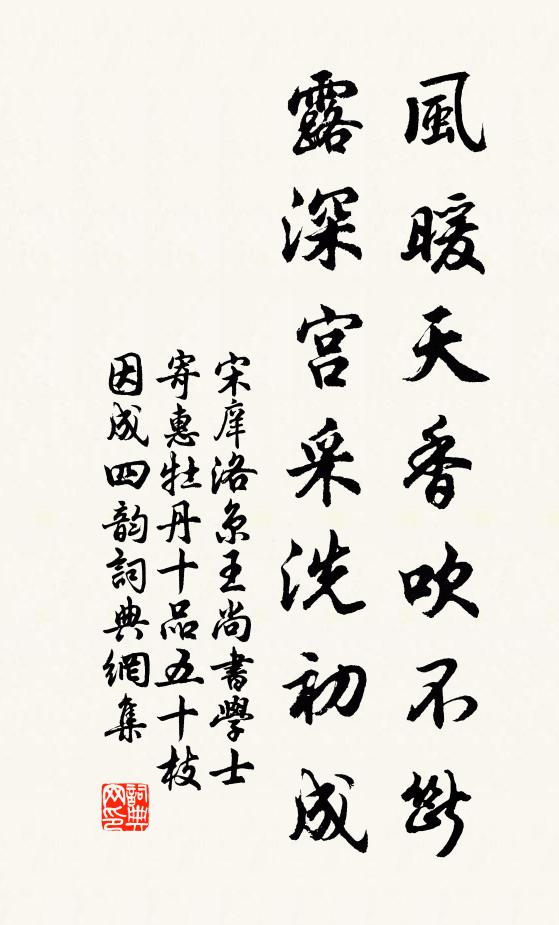 風暖天香吹不斷
露深宮采洗初成
宋庠洛京王尚書學士
寄惠牡丹十品五十枝
因成四韵詞典網集
詞典
网印